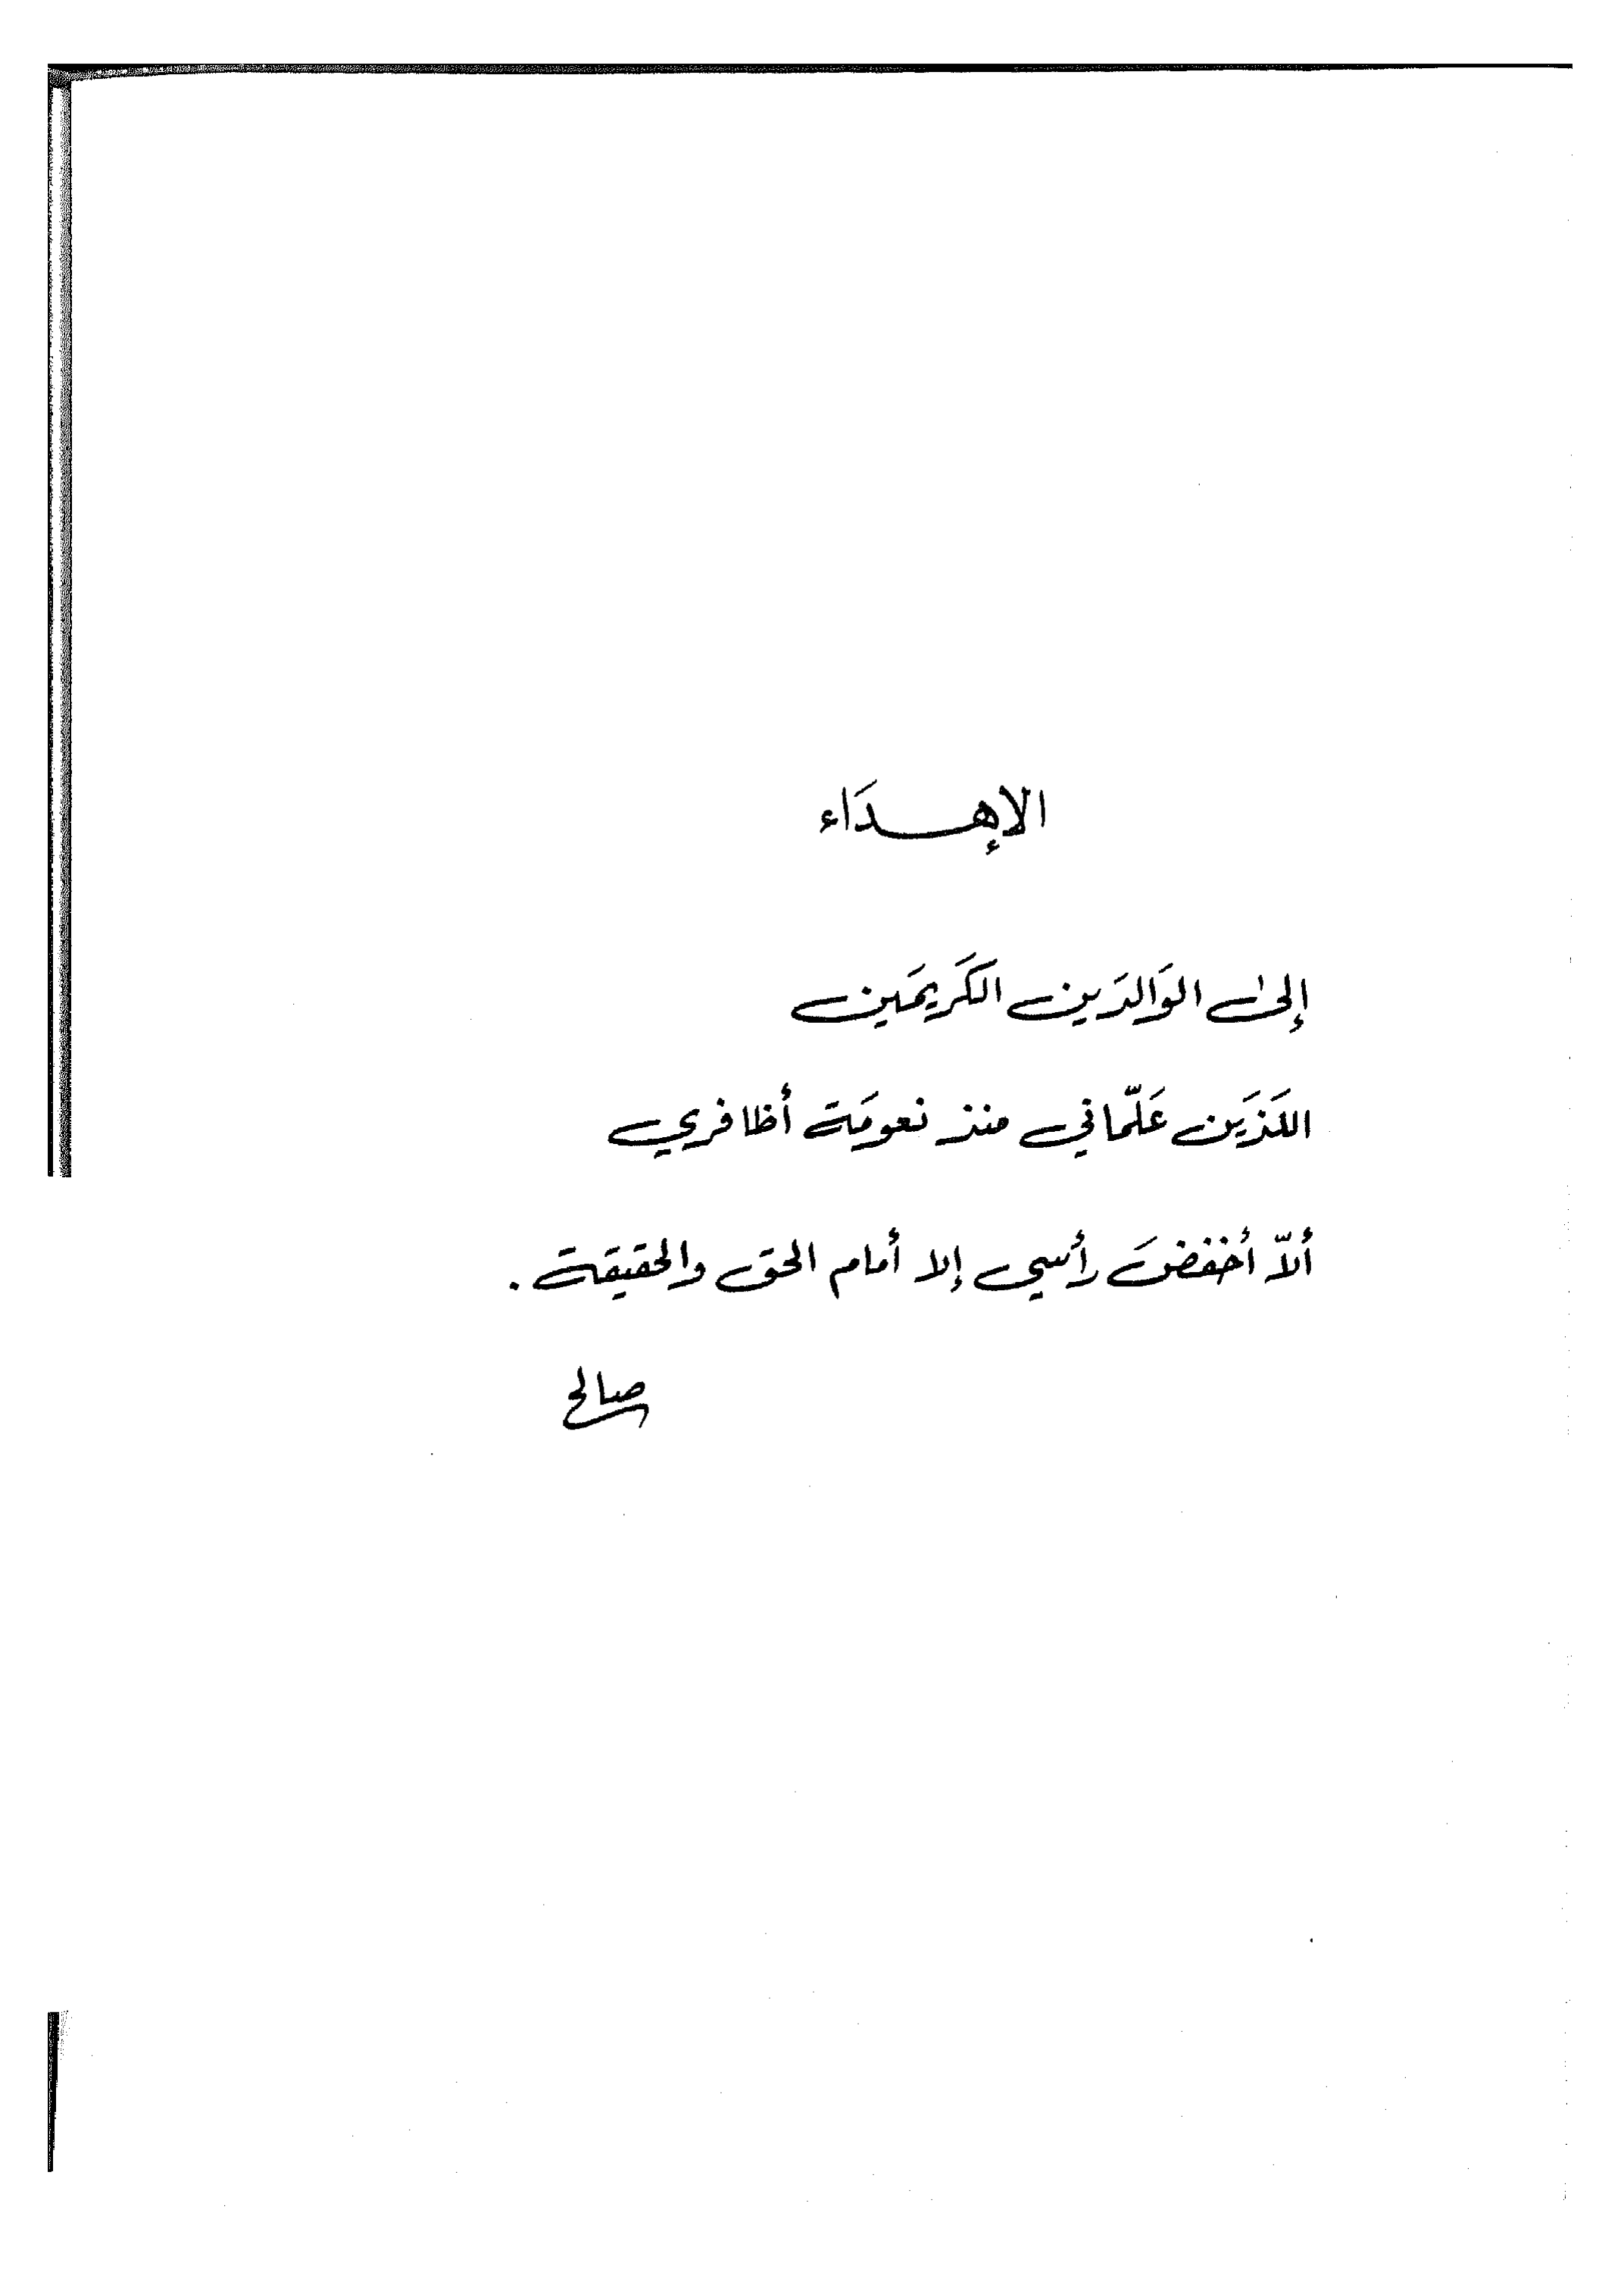 الإهـــدَاء
إلى الوَالدَين الكَريمَين
اللذَين عَلّماني منذ نعومَة أظافري
ألاّ أخفضَ رأسي إلا أمام الحق والحقيقة .
صالح